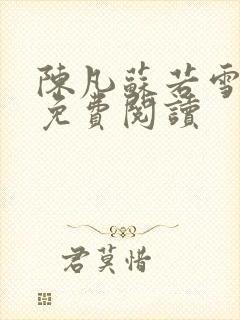 陳凡蘇若雪
免費閱讀
君莫惜